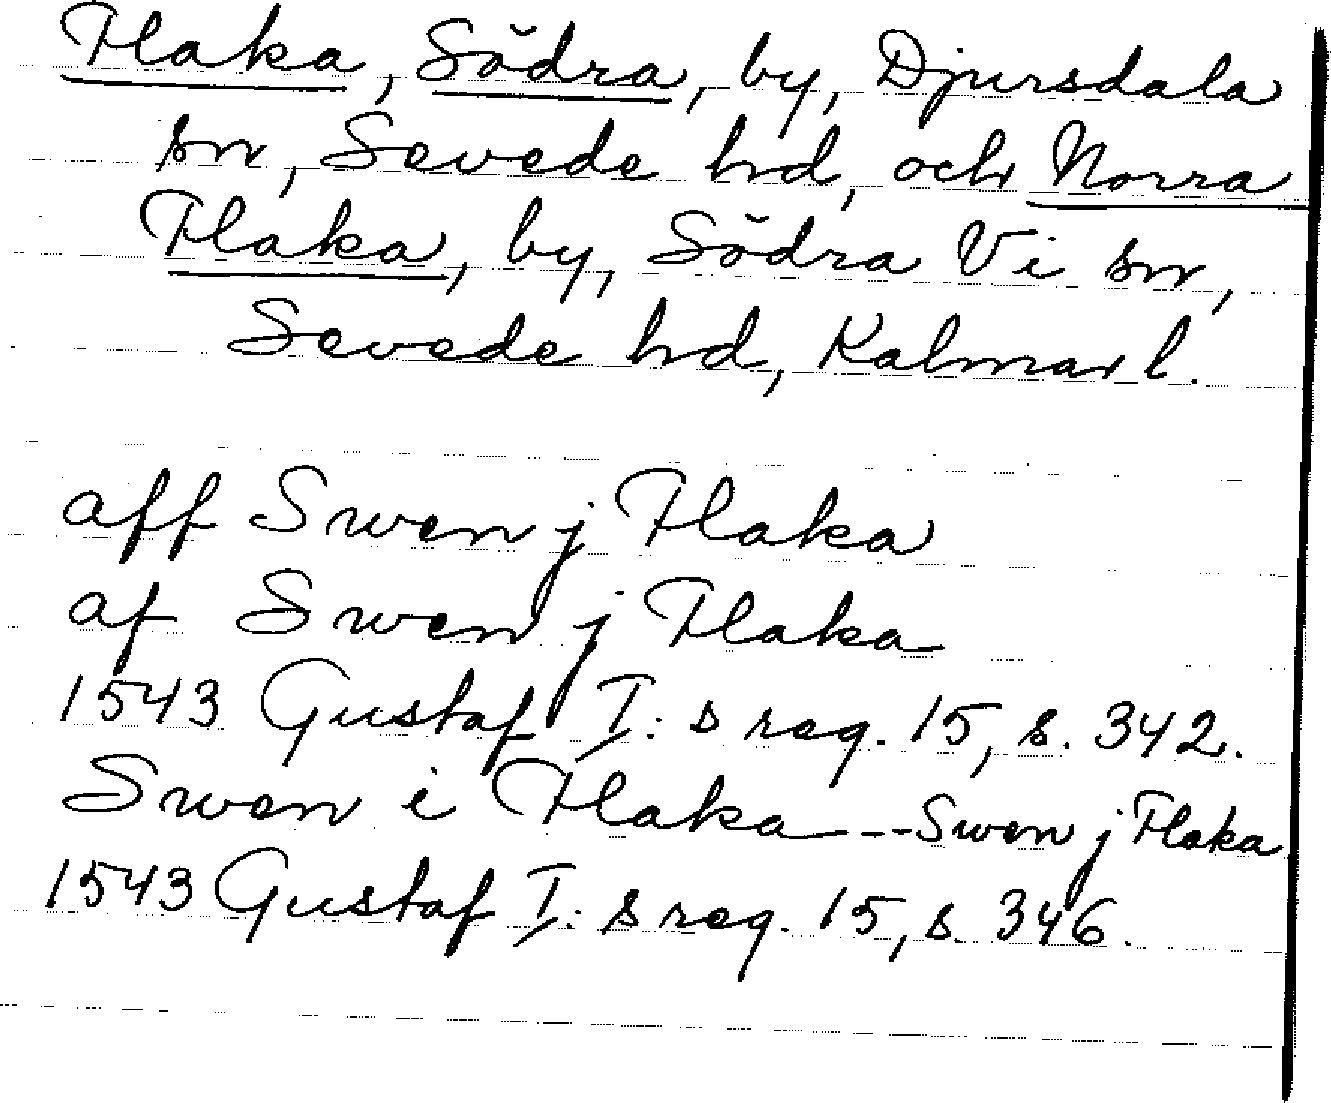 Flaka, Södra, by, Djursdala
sn, Sevede hd, och Norra
Flaka, by, Södra Vi sn,
Sevede hd, Kalmar l.
aff Swen j Flaka
af Swen j Flaka
1543 Gustaf I: s reg. 15, s. 342.
Swen i Flaka---Swen j Flaka
1543 Gustaf I: s reg. 15, s. 346.